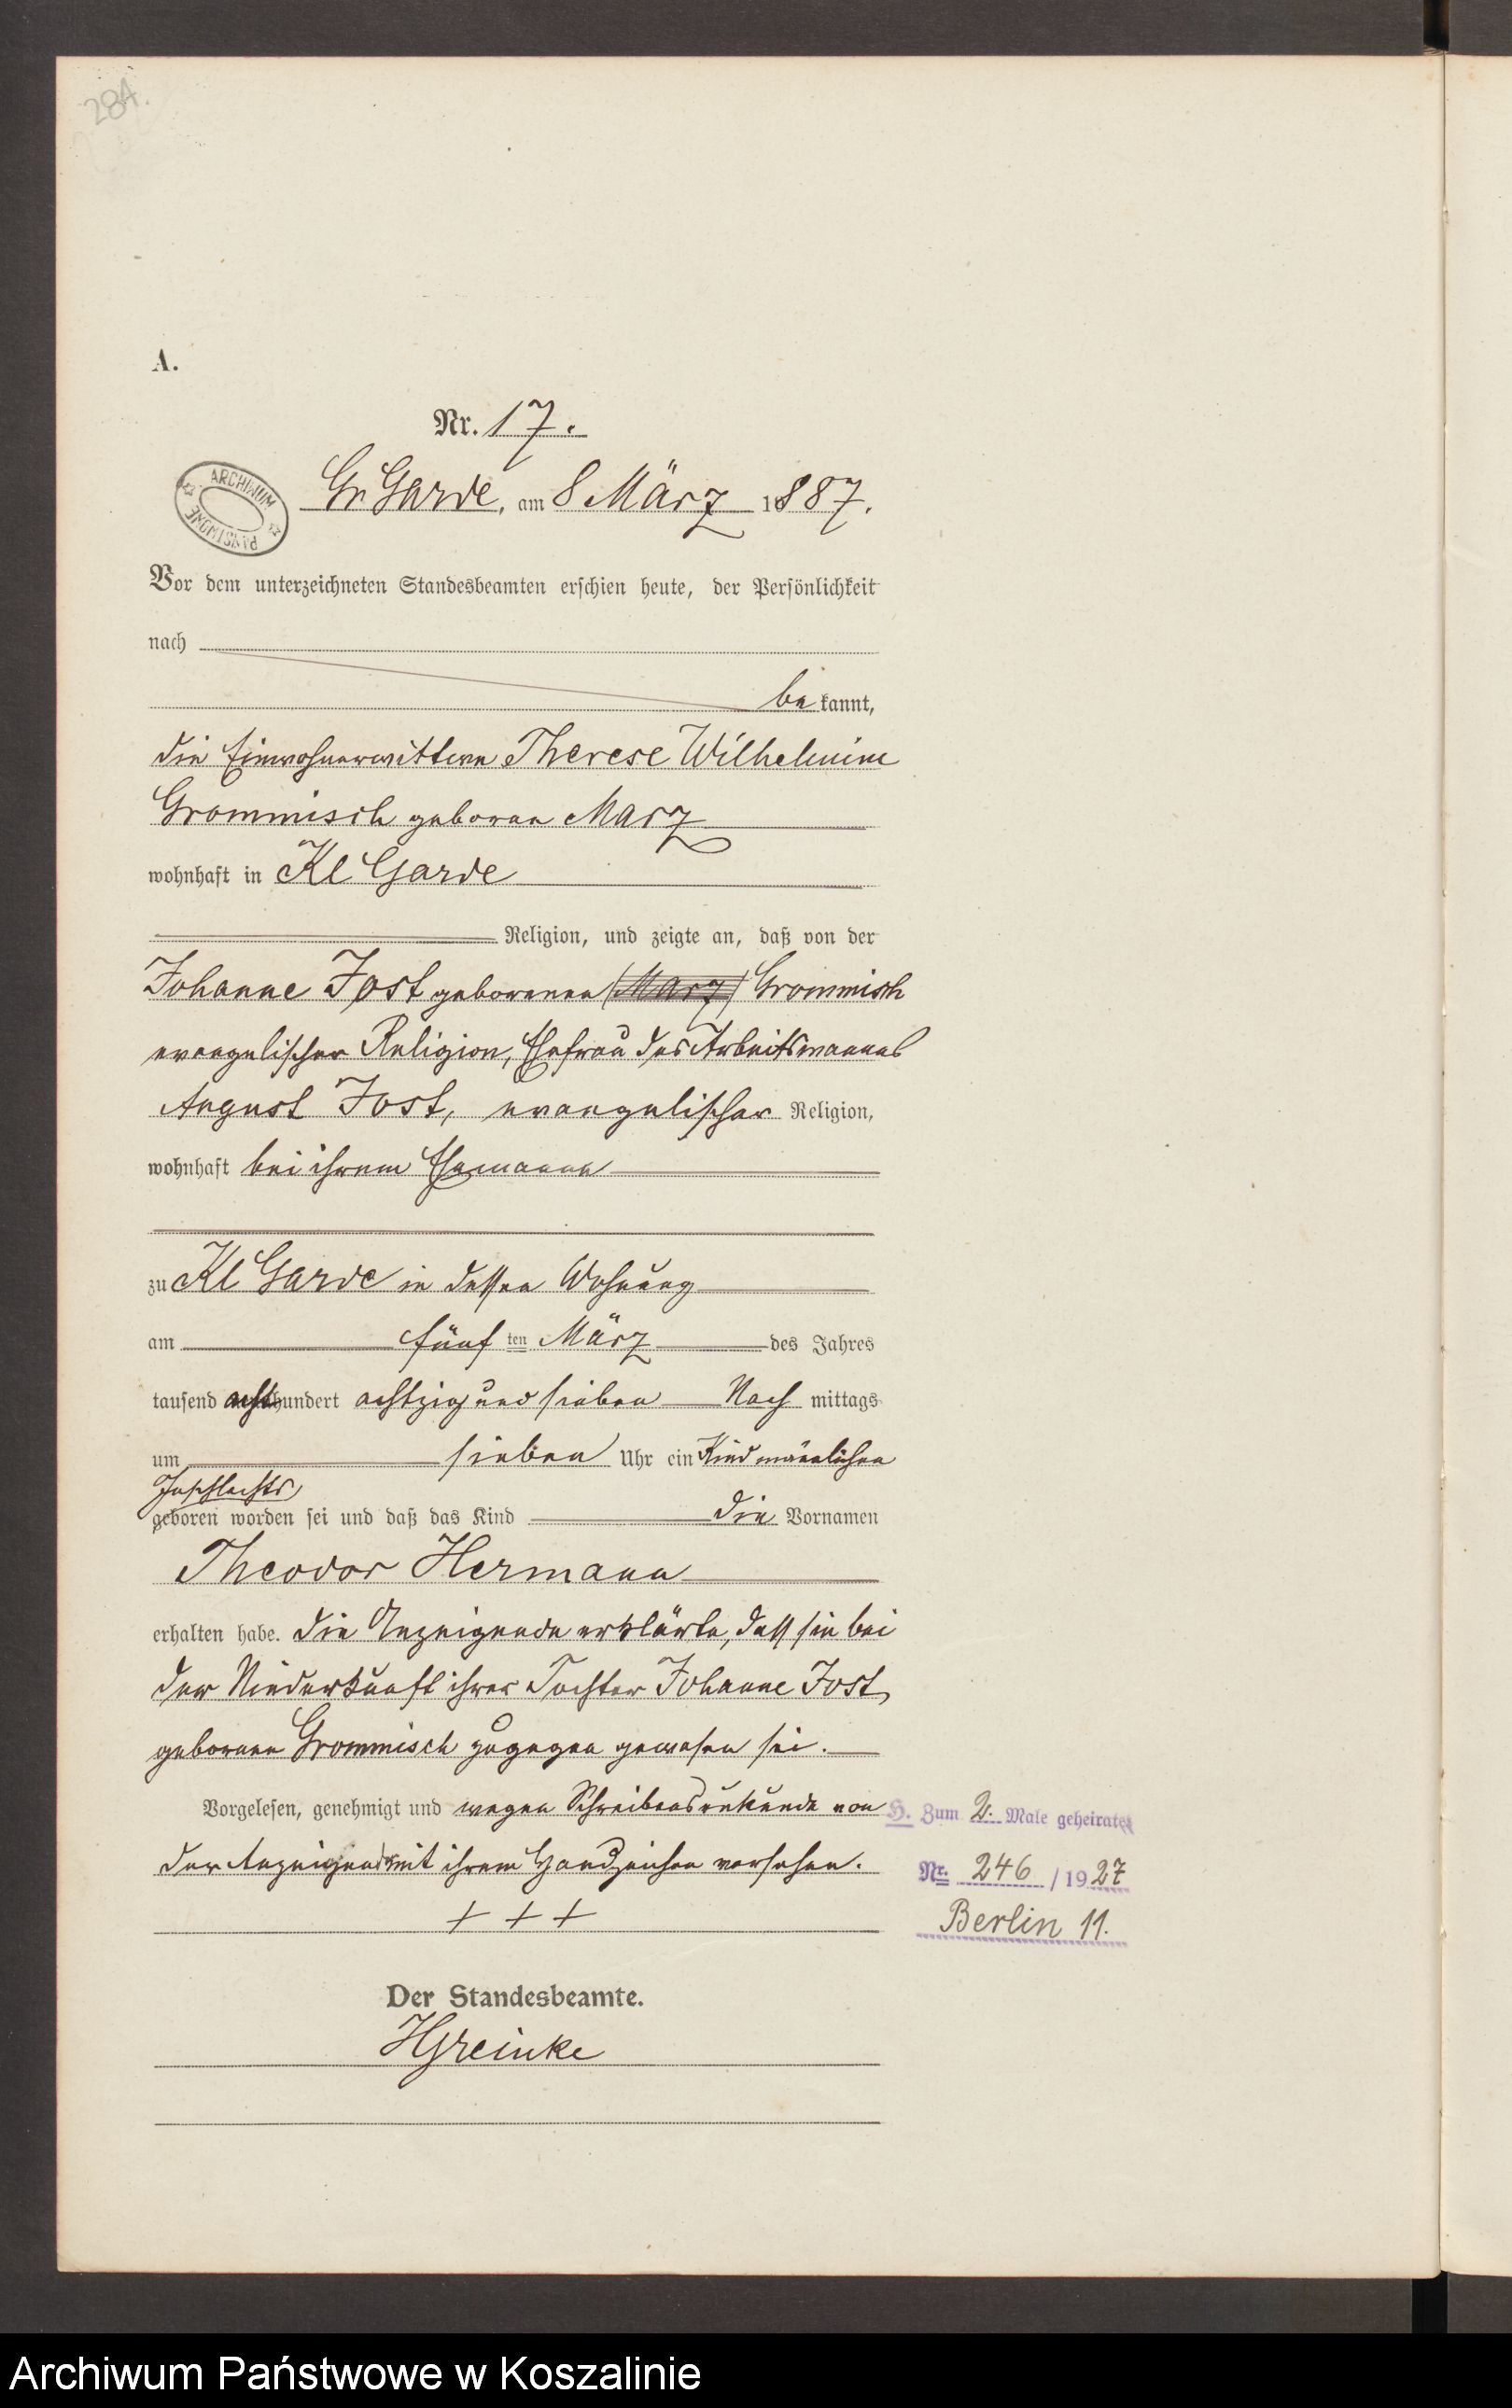 284.
A.
Nr. 17.
ARCHIWUM PAŃSTWOWE
Gr Garde, am 8 März 1887.
Vor dem unterzeichneten Standesbeamten erschien heute, der Persönlichkeit
nach
be kannt,
die Einwohnerwittwe Therese Wilhelmine
Grommisch geborene Marz
wohnhaft in Kl Garde
Religion, und zeigte an, daß von der
Johanne Jost geborenen (Marz) Grommisch
evangelischer Religion, Ehefrau des Arbeitsmannes
August Jost, evangelischer Religion,
wohnhaft bei ihrem Ehemanne
zu Kl Garde in dessen Wohnung
am fünf ten März des Jahres
tausend acht hundert achtzig und sieben Nach mittags
um sieben Uhr ein Kind männlichen
Geschlechts
geboren worden sei und daß das Kind die Vornamen
Theodor Hermann
erhalten habe. Die Anzeigende erklärte, daß sie bei
der Niederkunft ihrer Tochter Johanne Jost,
geborenen Grommisch zugegen gewesen sei.
Vorgelesen, genehmigt und wegen Schreibensunkunde von
der Anzeigenden mit ihrem Handzeichen versehen.
+ + +
H. Zum 2. Male geheiratet
Nr. 246 / 1927
Berlin 11.
Der Standesbeamte.
HGreinke
Archiwum Państwowe w Koszalinie